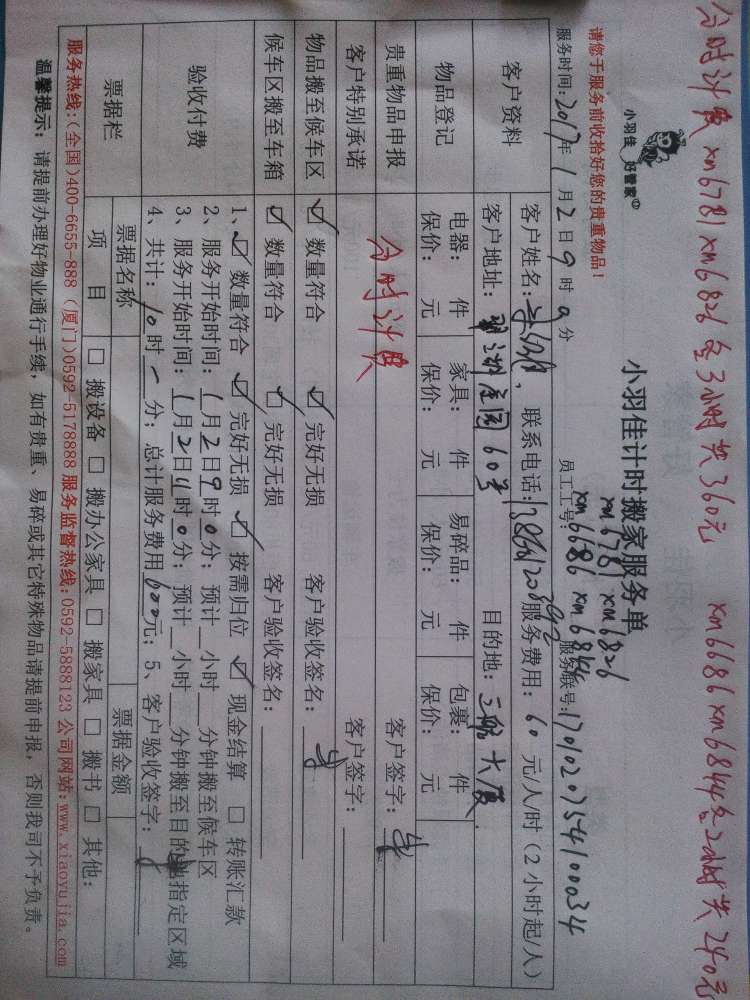 分时计费 xm6781 xm6826 各3小时 共360元 xm6686 xm6844各2小时 共240元
小羽佳 好管家
小羽佳计时搬家服务单
请您于服务前收拾好您的贵重物品!
xm6781 xm6826
服务时间:2017年1月2日9时9分 员工工号: xm6686 xm6844 服务联号:17010207544100034
客户资料
客户姓名: 联系电话: 服务费用:60元/人/时(2小时起/人)
客户地址: 60号 目的地: 大厦
物品登记
电器: 件 家具: 件 易碎品: 件 包裹: 件
保价: 元 保价: 元 保价: 元 保价: 元
贵重物品申报 客户签字:
客户特别承诺 分时计费 客户签字:
物品搬至候车区 ☑ 数量符合 ☑ 完好无损 客户验收签名:
候车区搬至车箱 ☑ 数量符合 ☑ 完好无损 客户验收签名:
验收付费
1、☑ 数量符合 ☑ 完好无损 ☑ 按需归位 ☑ 现金结算 □ 转账汇款
2、服务开始时间:1月2日9时0分;预计__小时__分钟搬至候车区
3、服务开始时间:1月2日11时0分;预计__小时__分钟搬至目的地指定区域
4、共计:10时__分;总计服务费用600元;5、客户验收签字:
票据栏
票据名称 票据金额
项目 □ 搬设备 □ 搬办公家具 □ 搬家具 □ 搬书 □ 其他:
服务热线:(全国)400-6655-888 (厦门)0592-5178888 服务监督热线:0592-5888123 公司网站:www.xiaoyujia.com
温馨提示:请提前办理好物业通行手续,如有贵重、易碎或其它特殊物品请提前申报,否则我司不予负责。